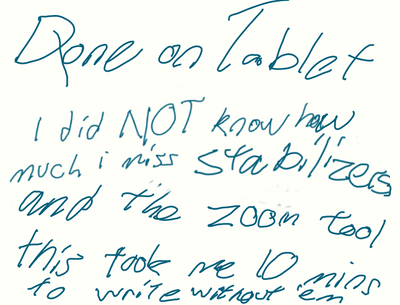 Done on Tablet
I did NOT know how
much i miss stabilizers
and the zoom tool
this took me 10 mins
to write without 'em